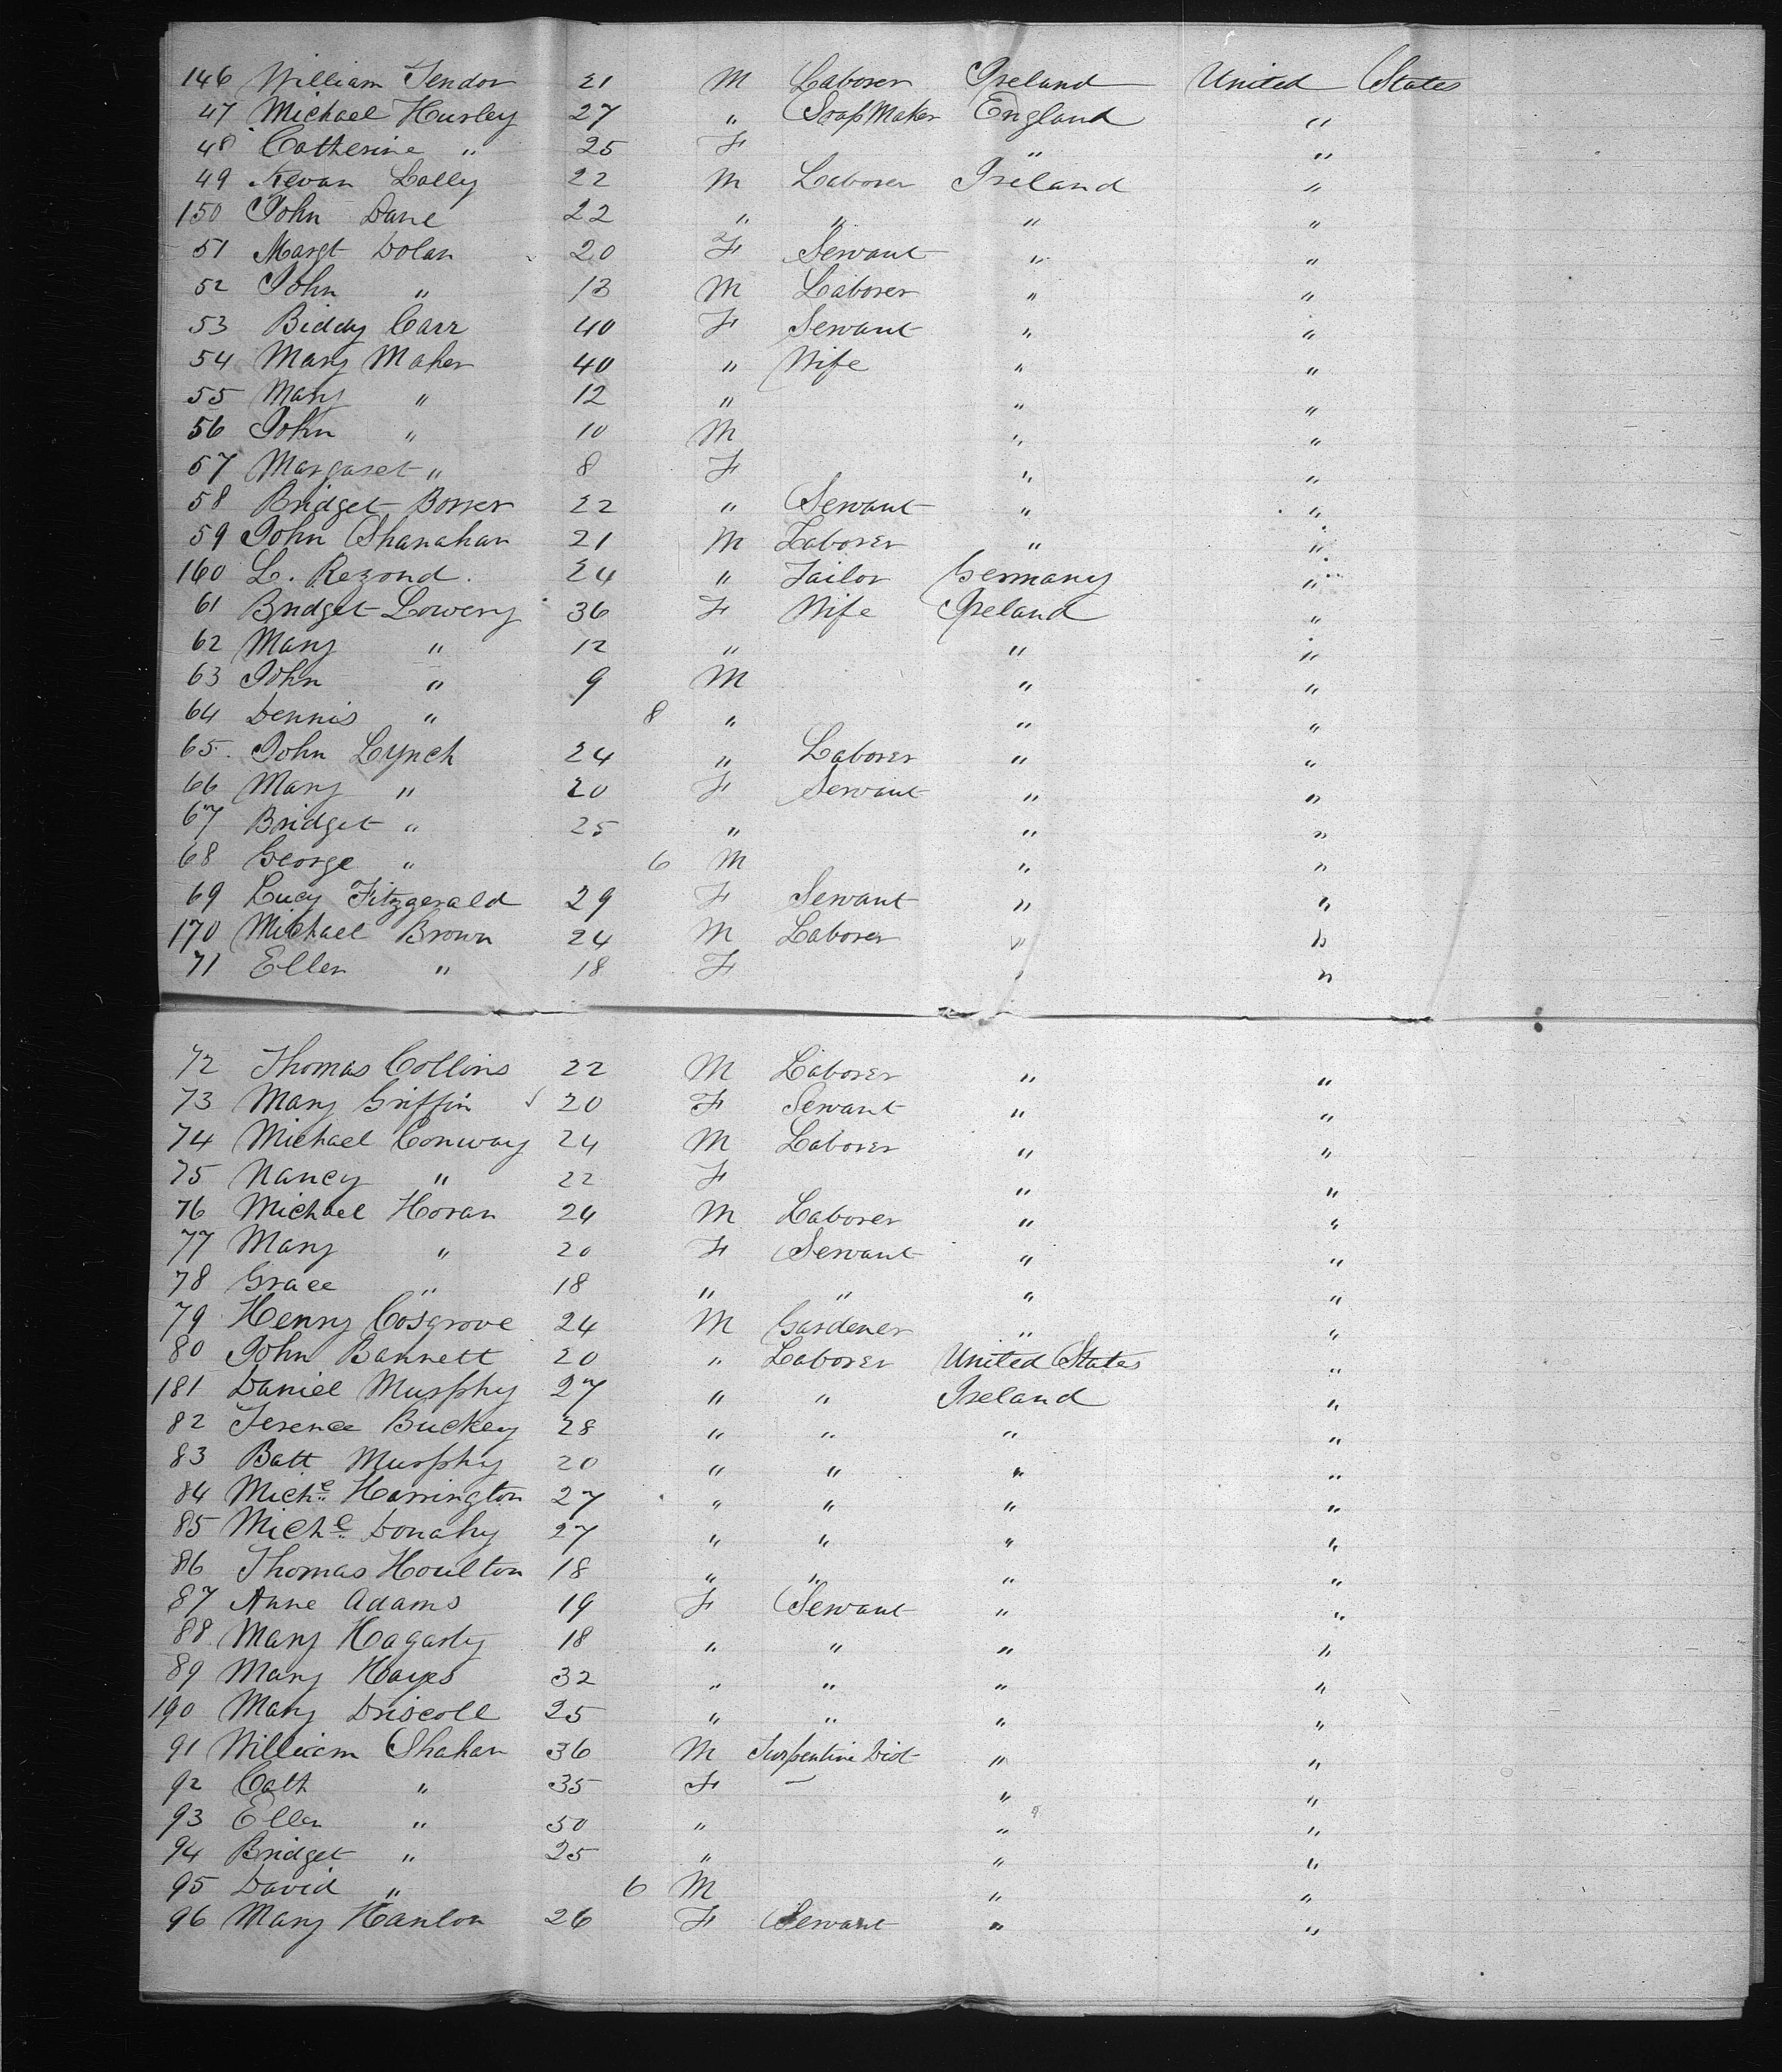 146 William Tendor 21 M Laborer Ireland United States
47 Michael Hurley 27 " Soap Maker England "
48 Catherine " 25 F " "
49 Kevan Lally 22 M Laborer Ireland "
150 John Dane 22 " " " "
51 Margt Dolan 20 F Servant " "
52 John " 13 M Laborer " "
53 Biddy Carr 40 F Servant " "
54 Mary Maher 40 " Wife " "
55 Mary " 12 " " "
56 John " 10 M " "
57 Margaret " 8 F " "
58 Bridget 22 " Servant " "
59 John Shanahan 21 M Laborer " "
160 L. Rezond. 24 " Tailor Germany "
61 Bridget Lowery 36 F Wife Ireland "
62 Mary " 12 " " "
63 John " 9 M " "
64 Dennis " 8 " " "
65. John Lynch 24 " Laborer " "
66 Mary " 20 F Servant " "
67 Bridget " 25 " " "
68 George " 6 M " "
69 Lucy Fitzgerald 29 F Servant " "
170 Michael Brown 24 M Laborer " "
71 Ellen " 18 F " "
72 Thomas Collins 22 M Laborer " "
73 Mary Griffin 20 F Servant " "
74 Michael Conway 24 M Laborer " "
75 Nancy " 22 F " "
76 Michael Horan 24 M Laborer " "
77 Mary " 20 F Servant " "
78 Grace " 18 " " " "
79 Henry Cosgrove 24 M Gardener " "
80 John Bannett 20 " Laborer United States "
181 Daniel Murphy 27 " " Ireland "
82 Terence Buckey 28 " " " "
83 Batt Murphy 20 " " " "
84 Miche Harrington 27 " " " "
85 Miche Donahy 27 " " " "
86 Thomas Houlton 18 " " " "
87 Anne Adams 19 F Servant " "
88 Mary Hagarty 18 " " " "
89 Mary Hayes 32 " " " "
190 Mary Driscoll 25 " " " "
91 William Shahan 36 M Turpentine Dist " "
92 Cath " 35 F — " "
93 Ellen " 50 " " "
94 Bridget " 25 " " "
95 David " 6 M " "
96 Mary Hanlon 26 F Servant " "